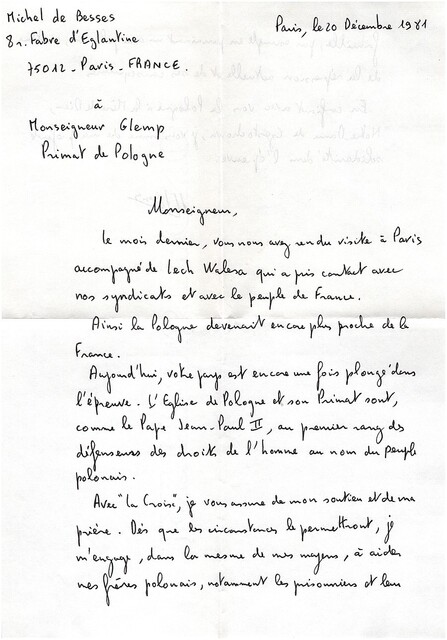 Michel de Besses
8 r. Fabre d'Eglantine
75012 - Paris - FRANCE.
Paris, le 20 Décembre 1981
à
Monseigneur Glemp
Primat de Pologne
Monseigneur,
Le mois dernier, vous nous avez rendu visite à Paris
accompagné de Lech Walesa qui a pris contact avec
nos syndicats et avec le peuple de France.
Ainsi la Pologne devenait encore plus proche de la
France.
Aujourd'hui, votre pays est encore une fois plongé dans
l'épreuve. L'Eglise de Pologne et son Primat sont,
comme le Pape Jean-Paul II, au premier rang des
défenseurs des droits de l'homme au nom du peuple
polonais.
Avec "la Croix", je vous assure de mon soutien et de ma
prière. Dès que les circonstances le permettront, je
m'engage, dans la mesure de mes moyens, à aider
mes frères polonais, notamment les prisonniers et leur